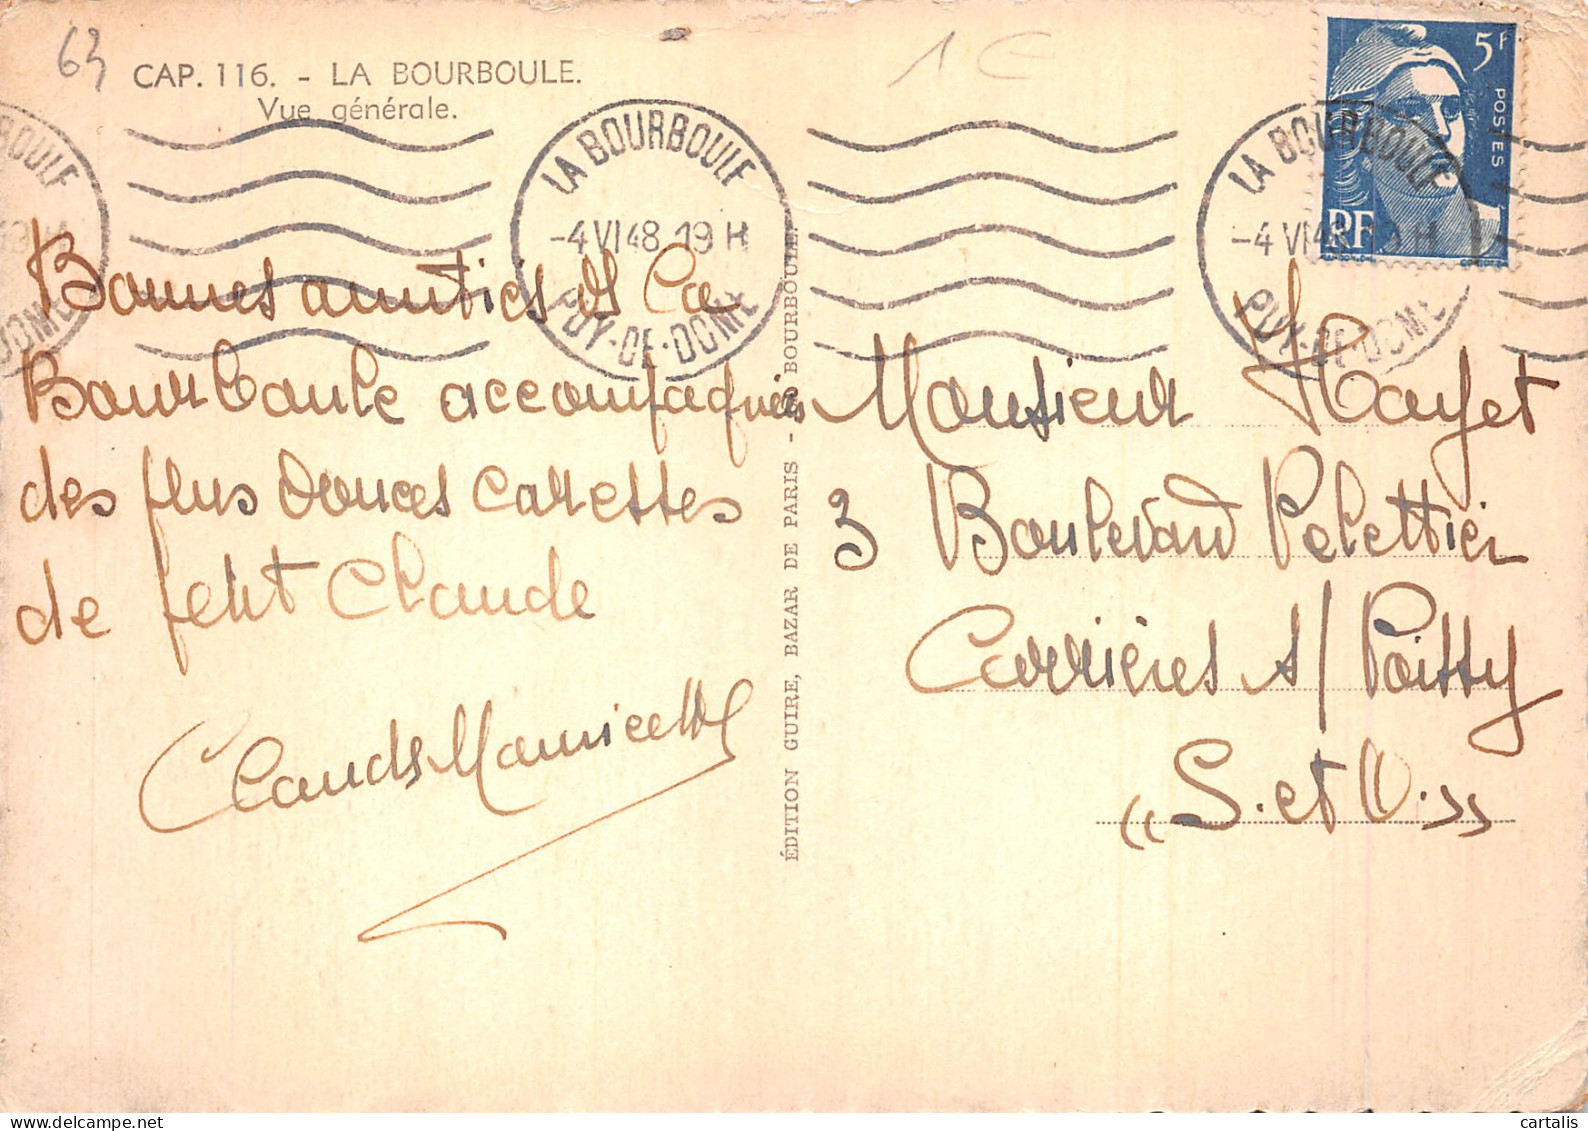 63
CAP. 116. - LA BOURBOULE.
Vue générale.
1 €
5F
POSTES
RF
LA BOURBOULE
-4 VI 48 19 H
PUY-DE-DOME
LA BOURBOULE
-4 VI 48 19 H
PUY-DE-DOME
Bonnes amitiés de La
Bourboule accompagnées
des plus douces caresses
de petit Claude
ÉDITION GUIRE, BAZAR DE PARIS - LA BOURBOULE.
Monsieur
3 Boulevard Pelettier
Carrières s/ Poissy
"S. et O."
cartalis